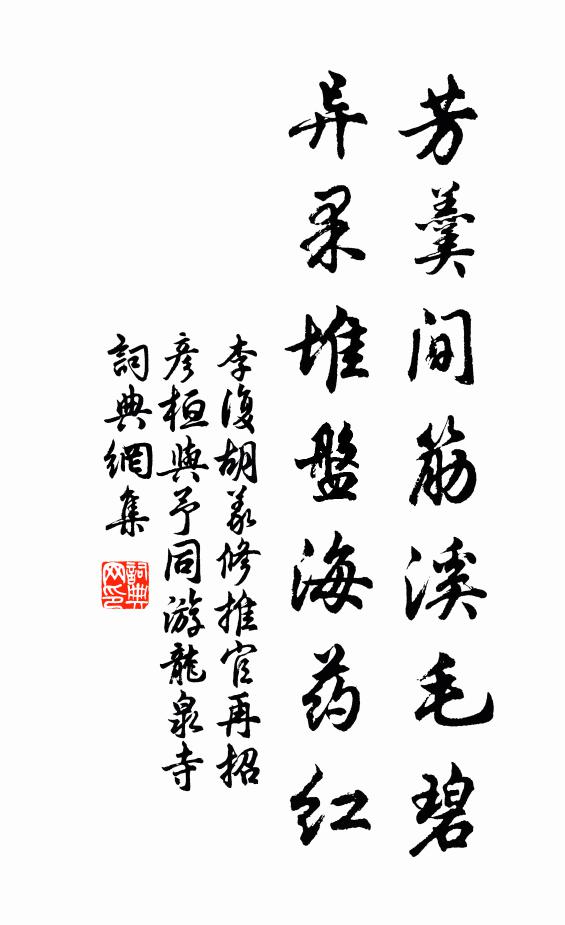 芳羹间筋溪毛碧
异果堆盤海药红
李復胡義修推官再招
彥桓與予同游龍泉寺
詞典網集
詞典网印